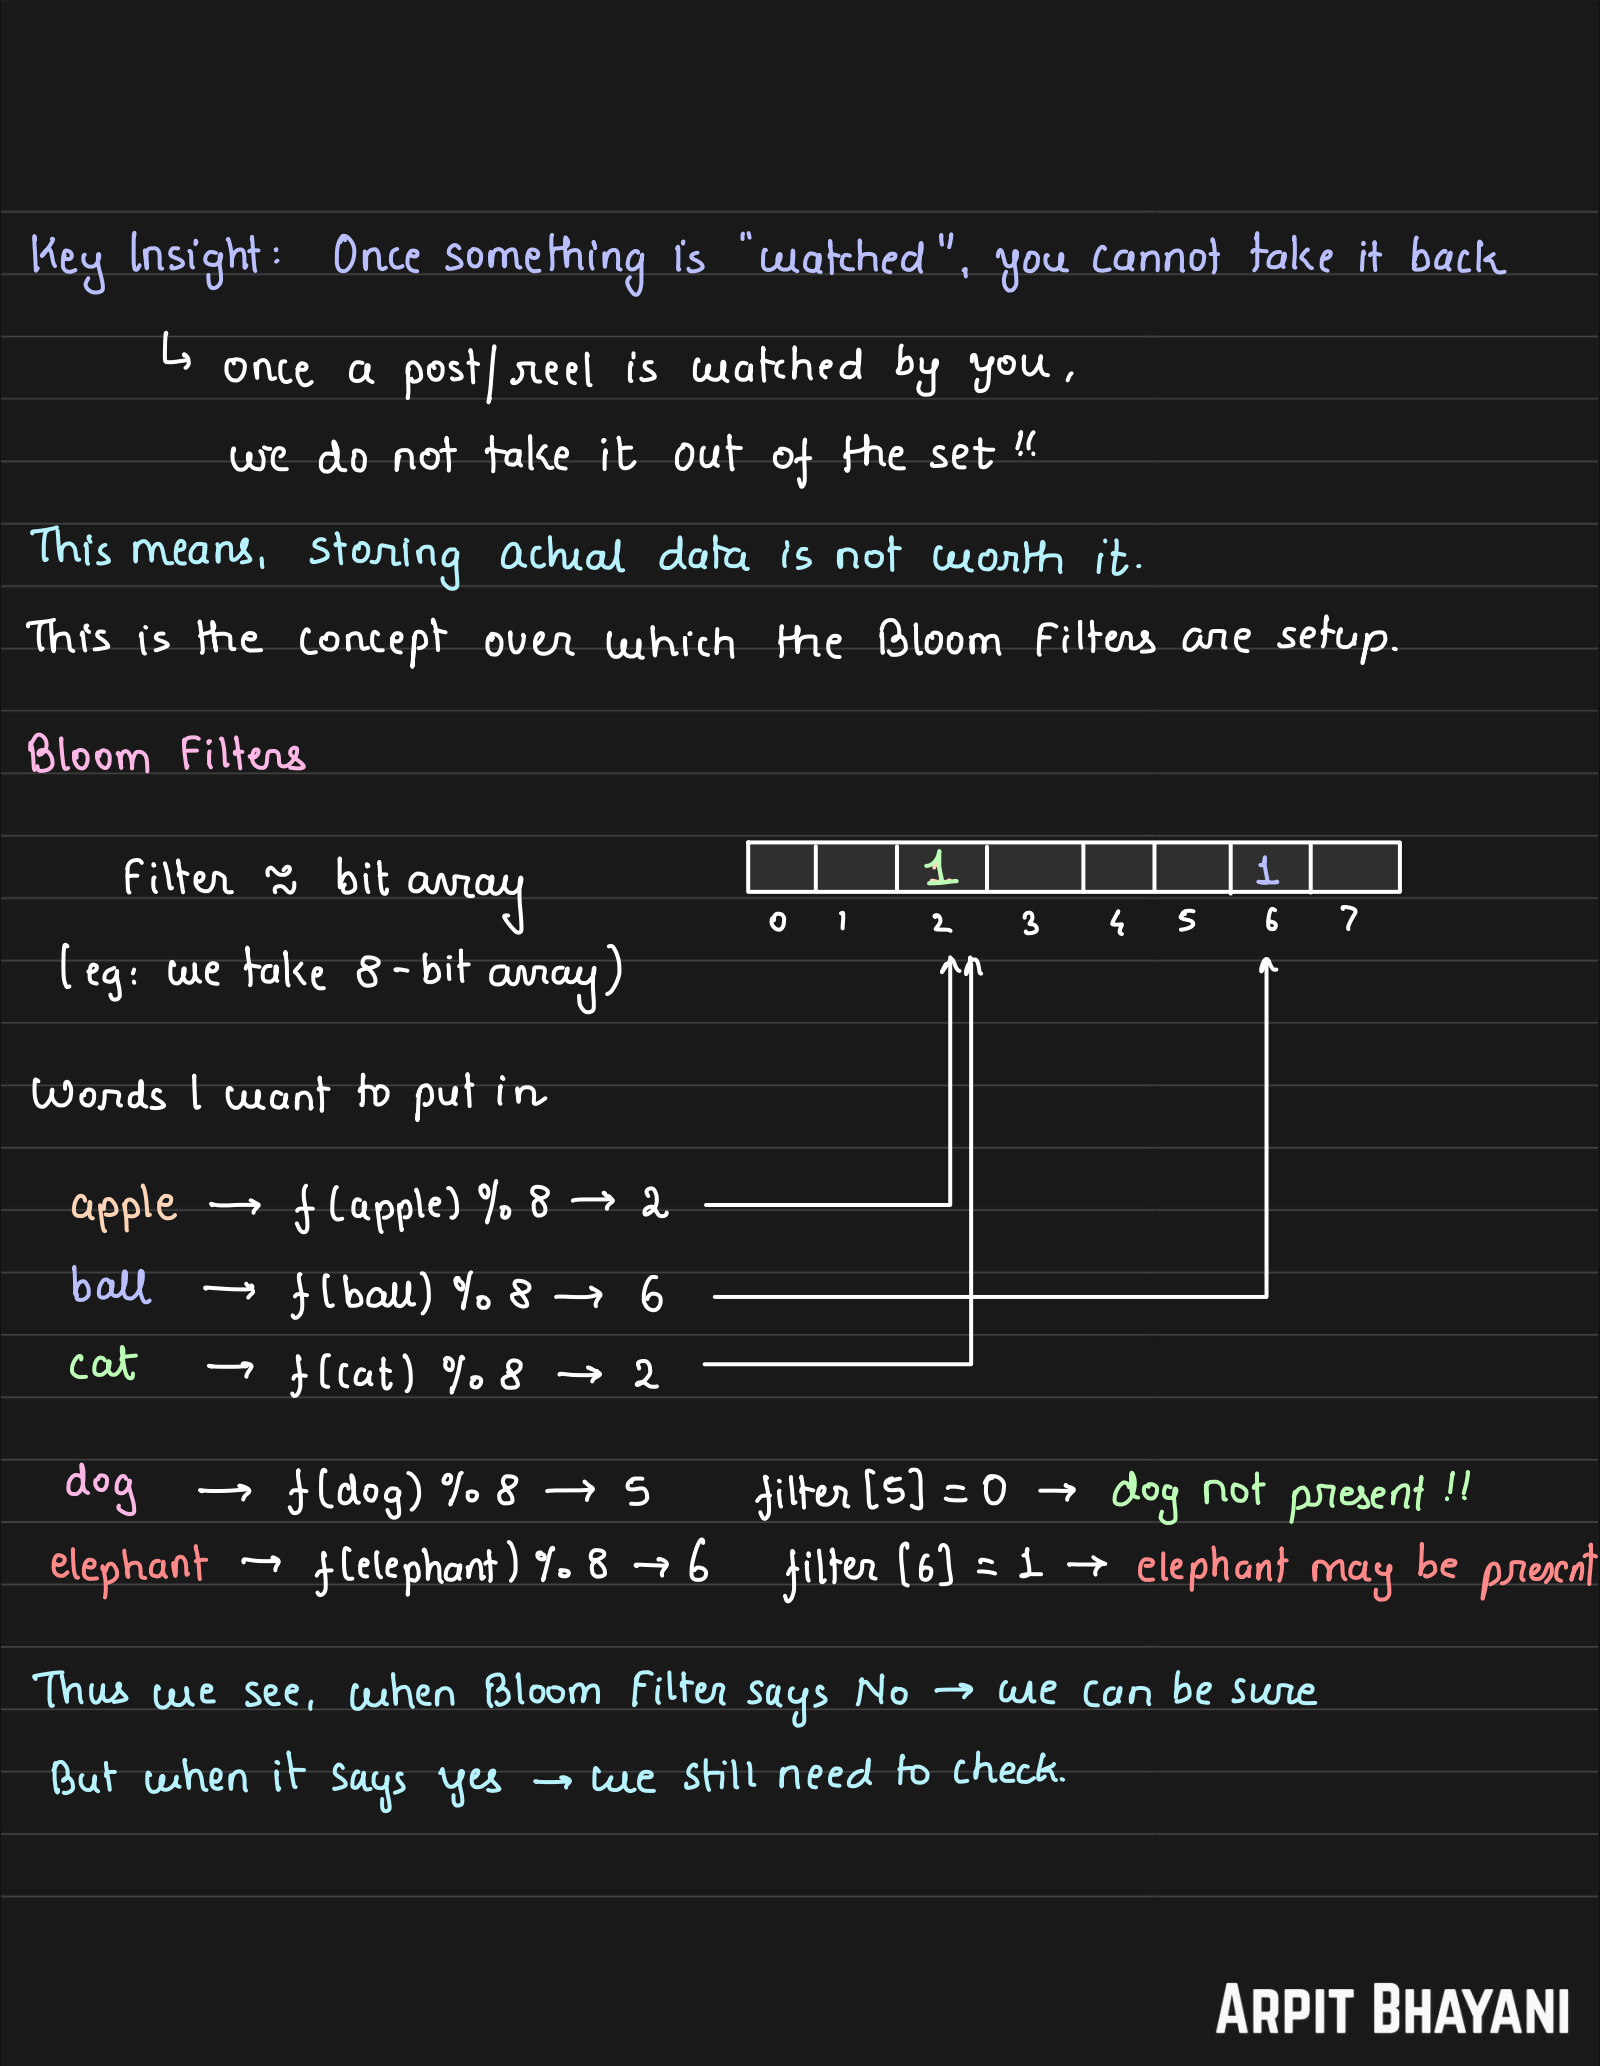 Key Insight: Once something is "watched", you cannot take it back
↳ once a post/reel is watched by you,
we do not take it out of the set !!
This means, storing actual data is not worth it.
This is the concept over which the Bloom Filters are setup.
Bloom Filters
Filter ≈ bit array
1 1
0 1 2 3 4 5 6 7
(eg: we take 8-bit array)
Words I want to put in
apple → f(apple) % 8 → 2
ball → f(ball) % 8 → 6
cat → f(cat) % 8 → 2
dog → f(dog) % 8 → 5 filter[5] = 0 → dog not present !!
elephant → f(elephant) % 8 → 6 filter[6] = 1 → elephant may be present
Thus we see, when Bloom Filter says No → we can be sure
But when it says yes → we still need to check.
ARPIT BHAYANI